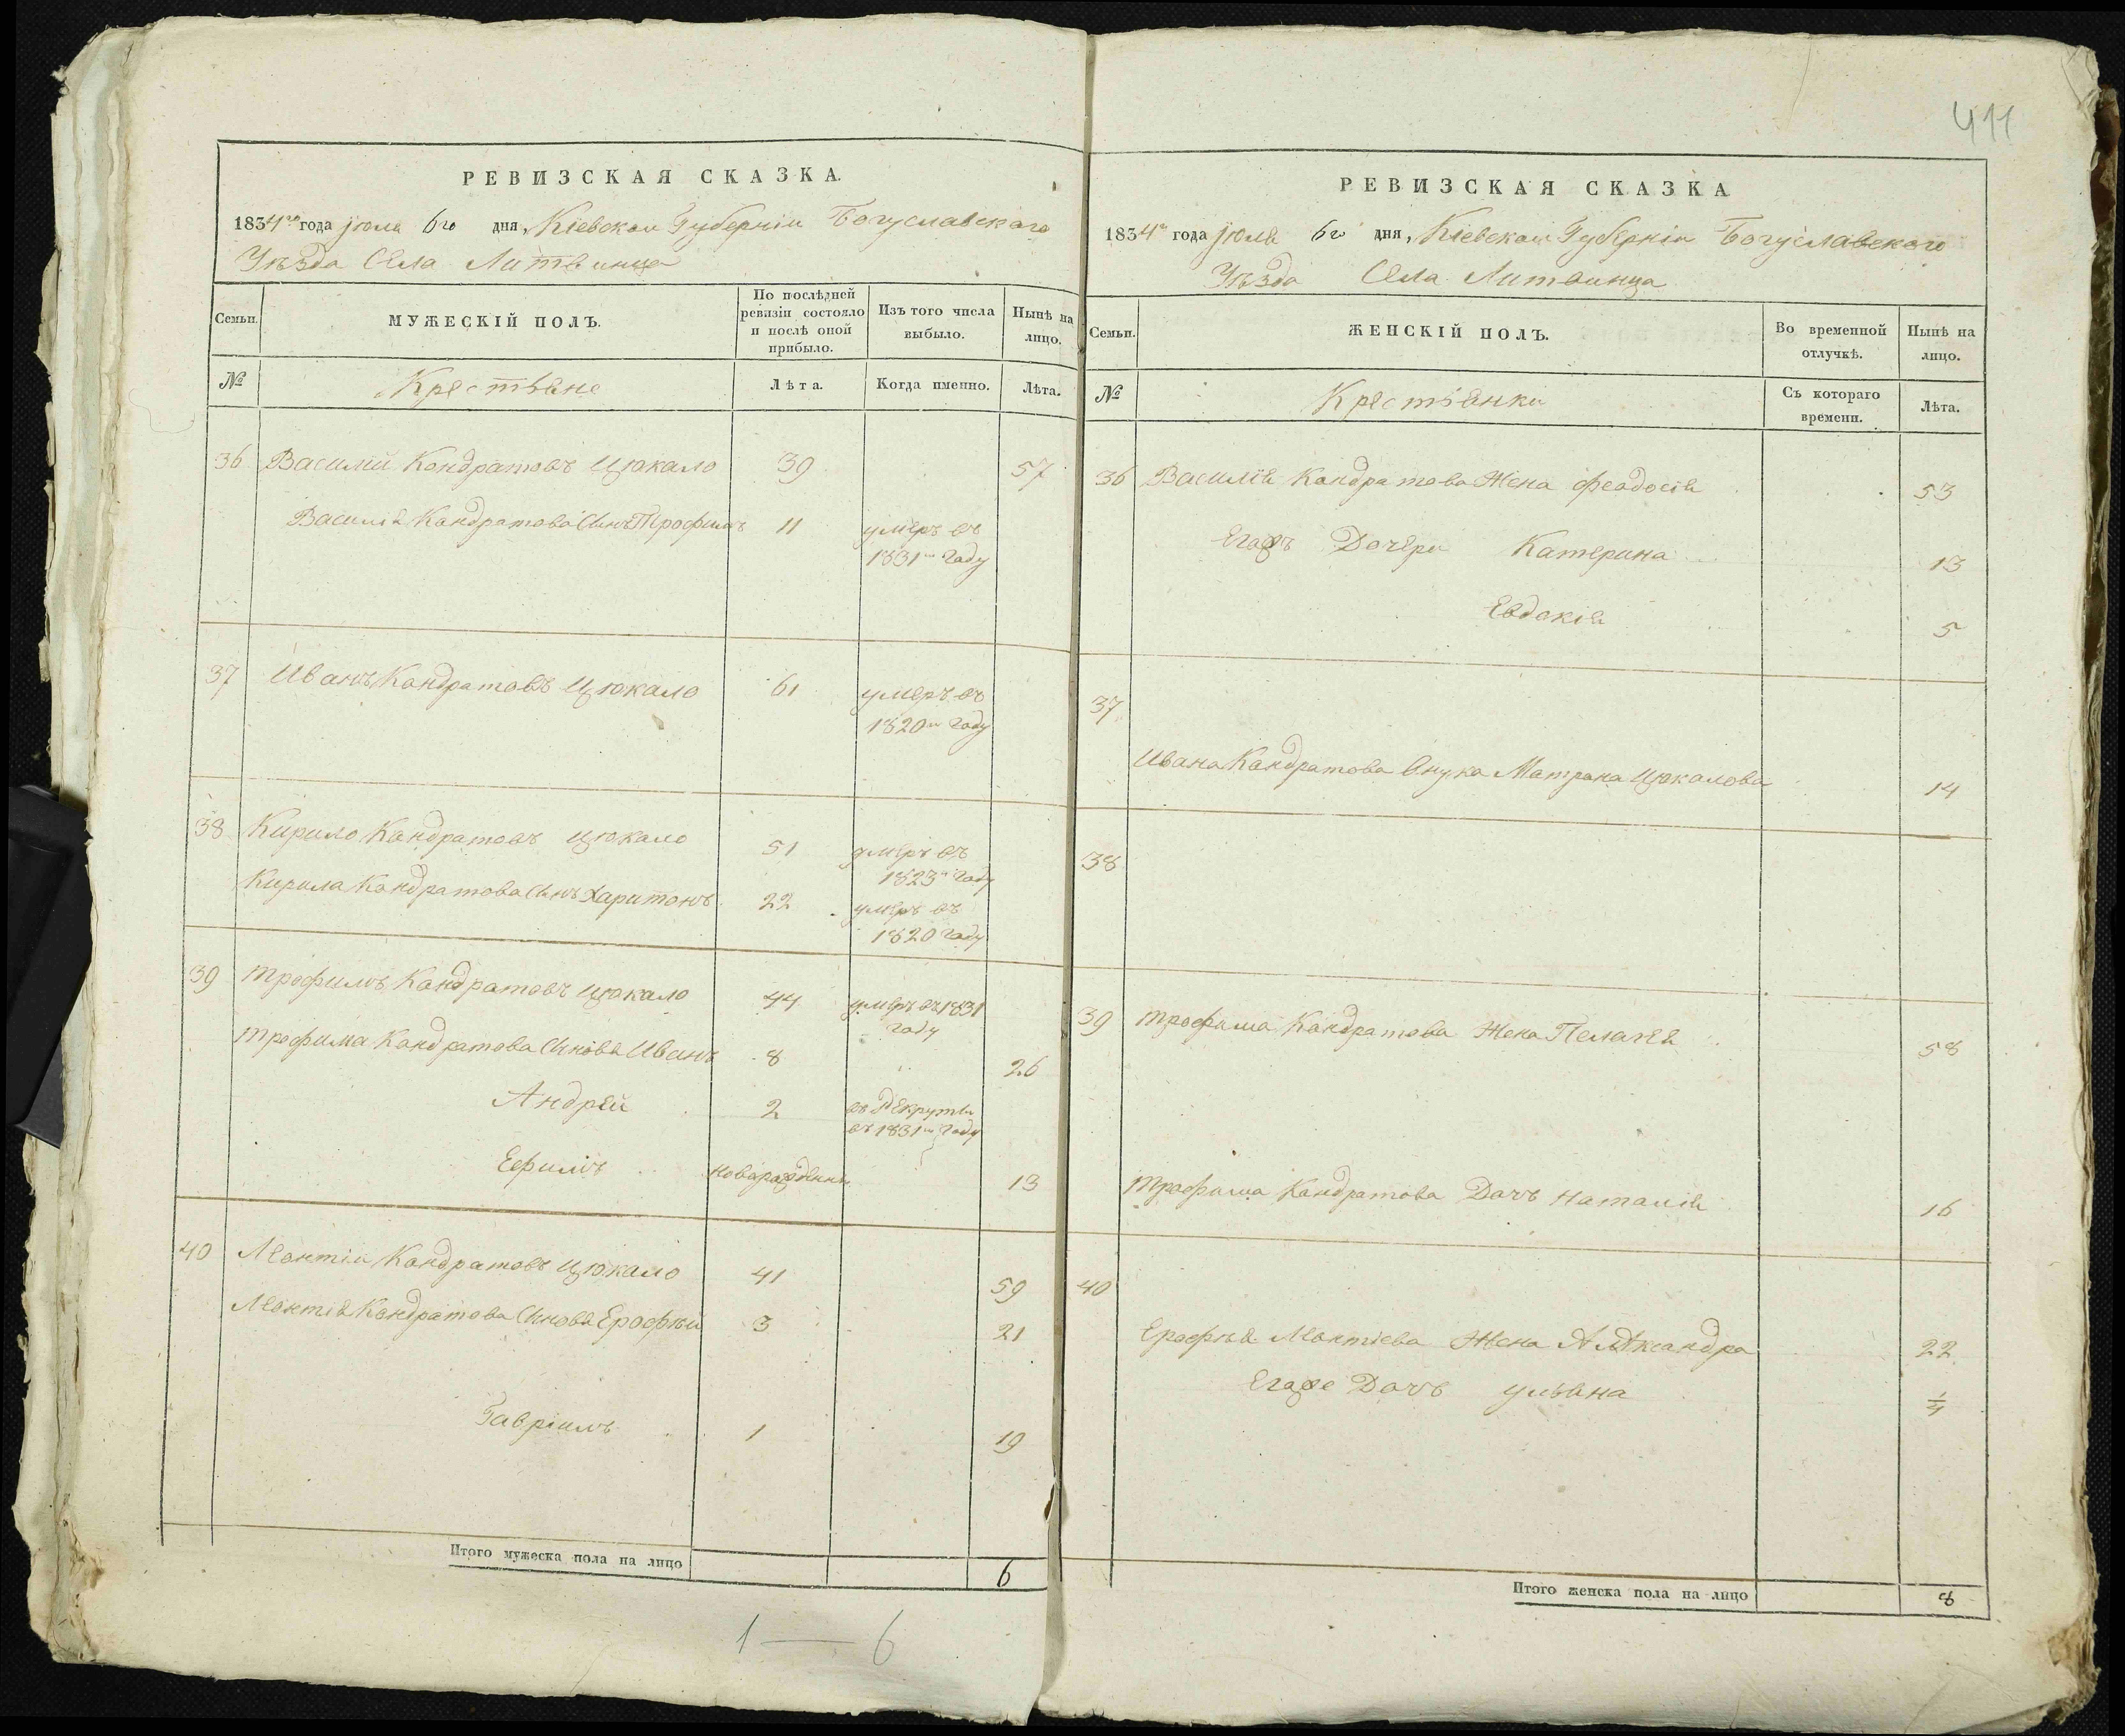 411
РЕВИЗСКАЯ СКАЗКА.
1834го года июля 6го дня, Кіевской Губерніи Богуславского
Уѣзда Села Литвинца
Семьи.
МУЖЕСКІЙ ПОЛЪ.
По послѣдней ревизіи состояло и послѣ оной прибыло.
Изъ того числа выбыло.
Нынѣ на лицо.
№
Крестяне
Лѣта.
Когда именно.
Лѣта.
36 Василий Кондратовъ Цюкало 39 57
Василия Кандратова Синъ Трофимъ 11 умеръ въ
1831м году
37 Иванъ Кандратовъ Цюкало 61 умеръ въ
1820м году
38 Кирило Кандратовъ Цюкало 51 умеръ въ
1823м году
Кирила Кандратова Синъ Харитонъ 22 умеръ въ
1820 году
39 Трофимъ Кандратовъ Цюкало 44 умеръ въ 1831
году
Трофима Кандратова Синови Иванъ 8 26
Андрей 2 въ Рекрути
въ 1831м году
Ефимъ новарожденни 13
40 Леонтіи Кандратовъ Цюкало 41 59
Леонтія Кандратова Синови Ерофѣи 3 21
Гавріилъ 1 19
Итого мужеска пола на лицо 6
1 — 6
РЕВИЗСКАЯ СКАЗКА
1834го года июля 6го дня, Кіевской Губерніи Богуславского
Уѣзда Села Литвинца
Семьи.
ЖЕНСКІЙ ПОЛЪ.
Во временной отлучкѣ.
Нынѣ на лицо.
№
Крестянки
Съ котораго времени.
Лѣта.
36 Василія Кандратова Жена Феадосія 53
Егожъ Дочери Катерина 13
Евдокія 5
37
Ивана Кандратова Внука Матрана Цюкалова 14
38
39 Трофима Кандратова Жена Пелагея 58
Трофима Кандратова Дочъ Наталія 16
40
Ерофѣя Леонтіева Жена Александра 22
Егоже Дочъ Уляна 1/4
Итого женска пола на лицо 8